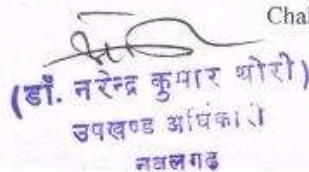 Chal
(डॉ. नरेन्द्र कुमार थोरी)
उपखण्ड अधिकारी
नवलगढ़